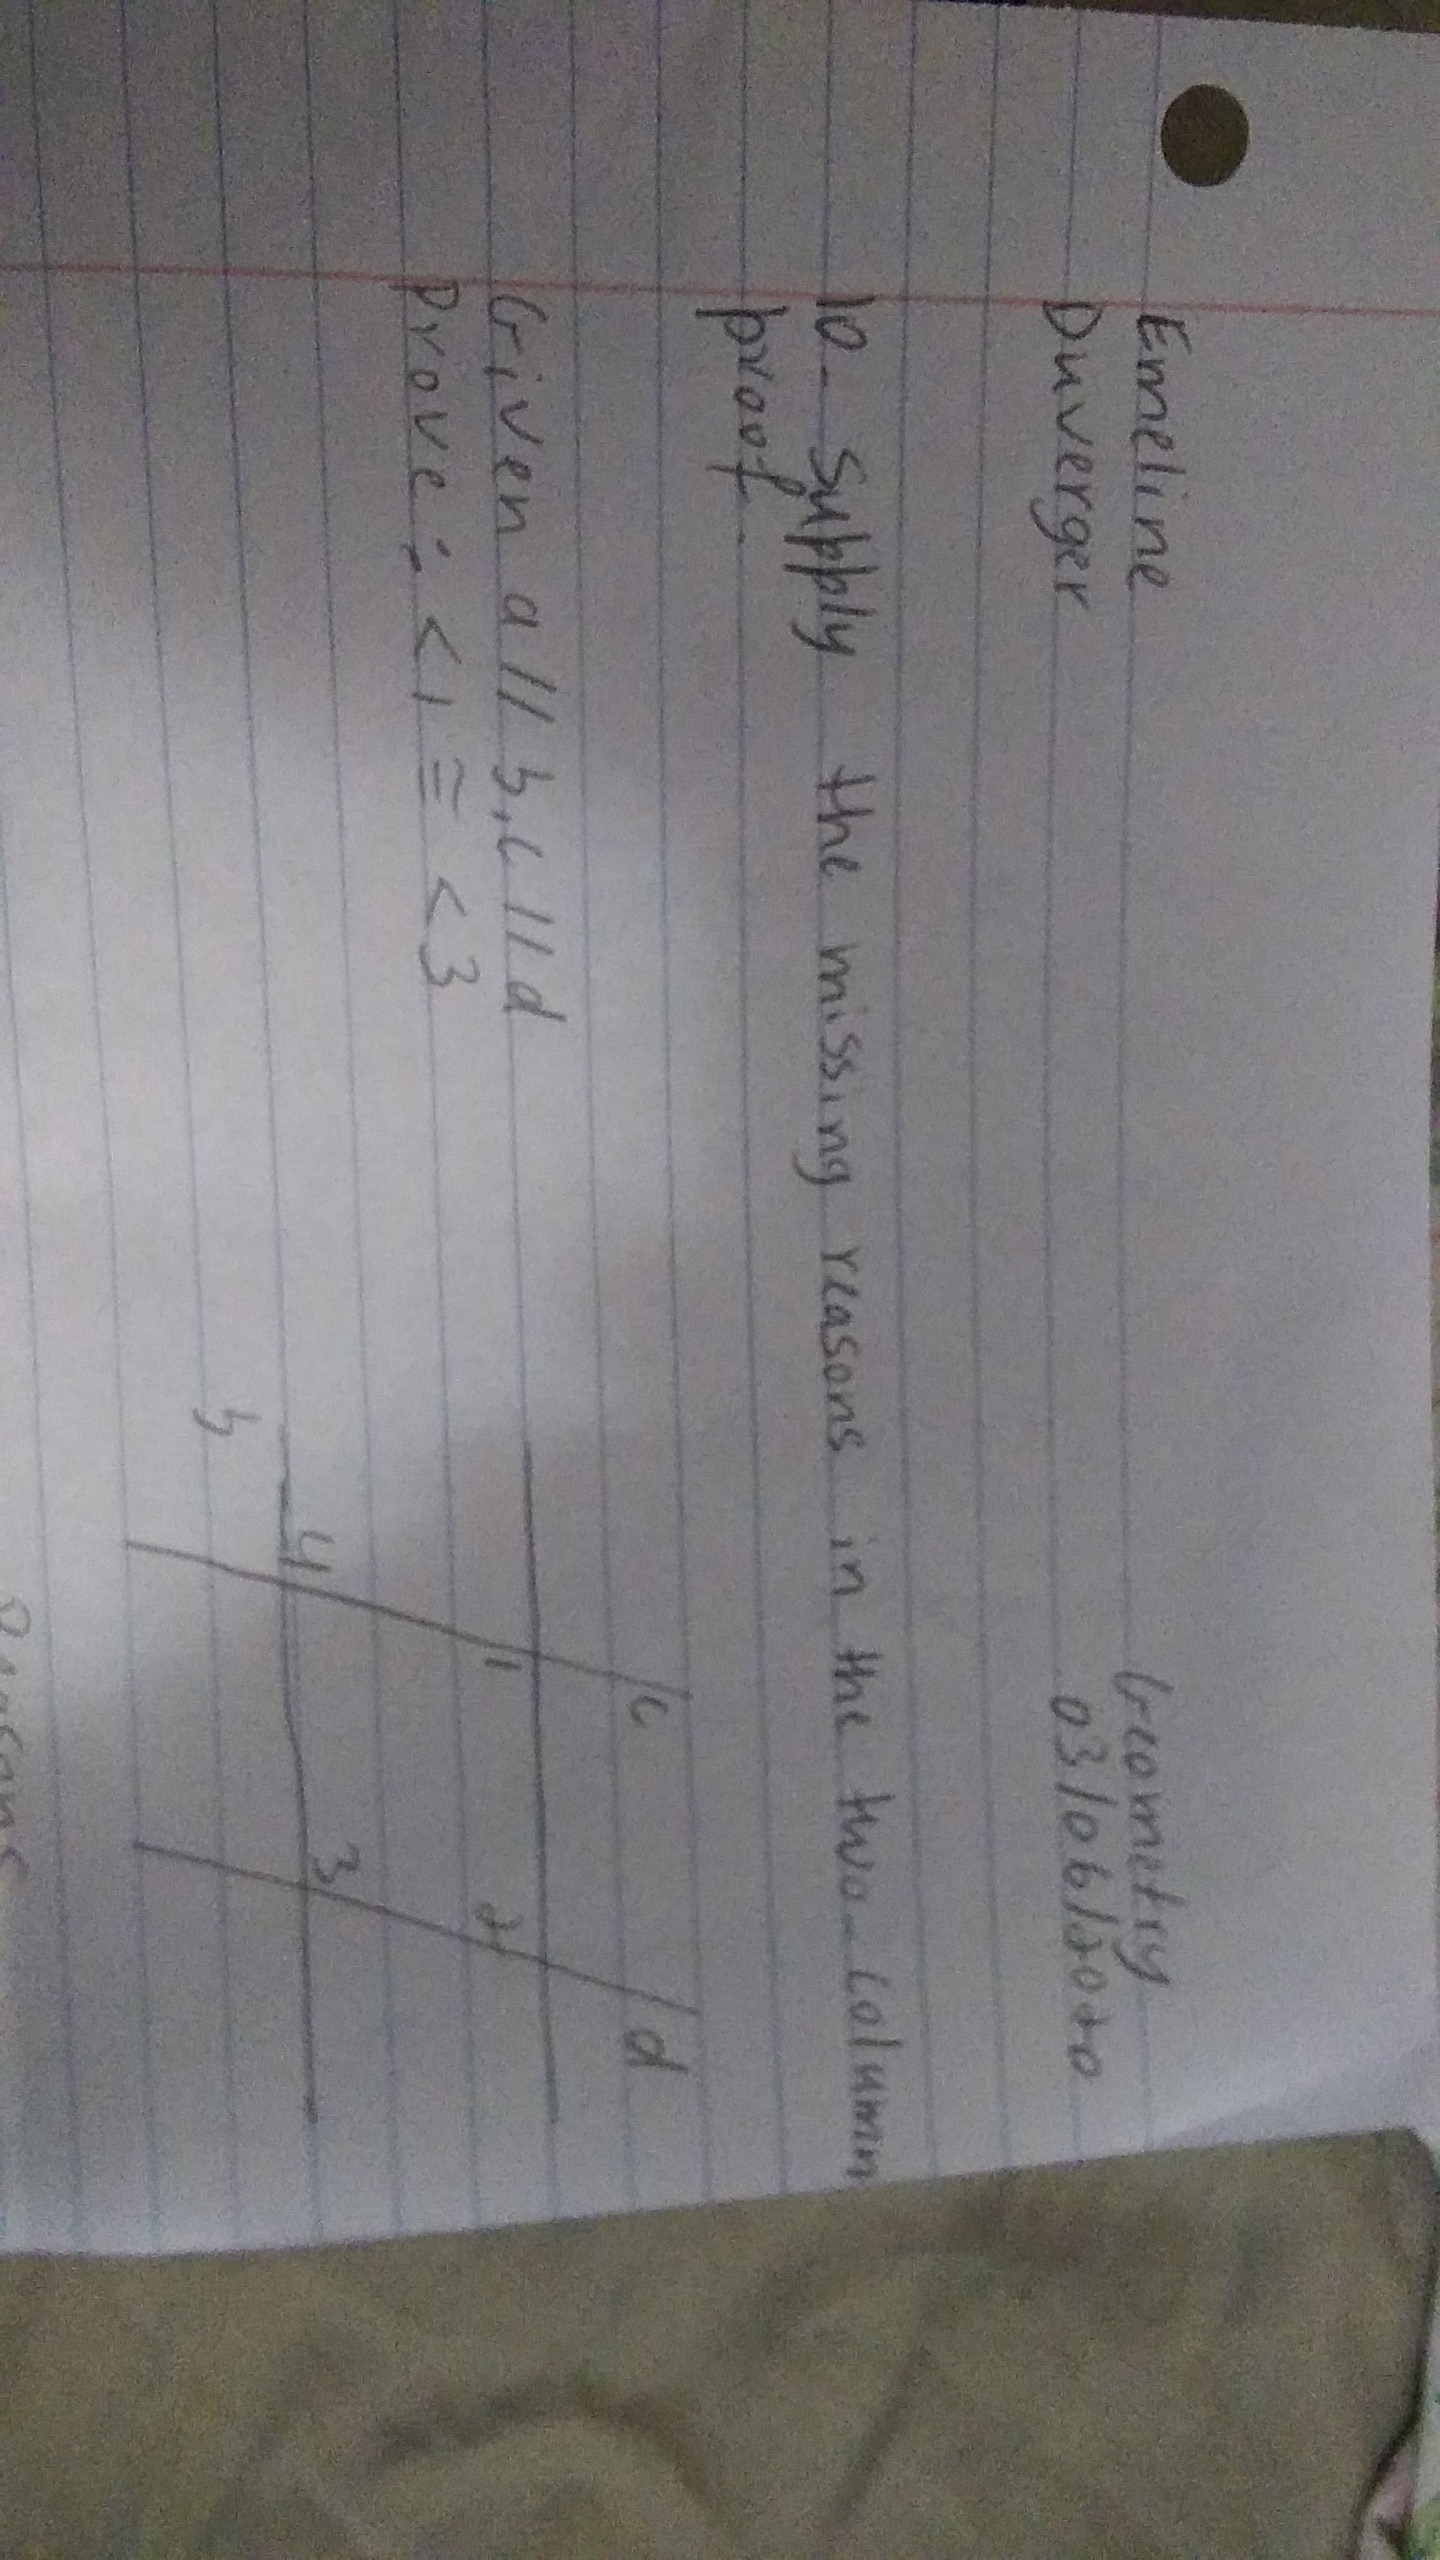 Emeline Geometry
Duverger
10- Supply the missing reasons in the two-column
proof.
Given a // b, c // d
Prove: <1 ≅ <3
c
d
1
2
4
3
b
Reasons